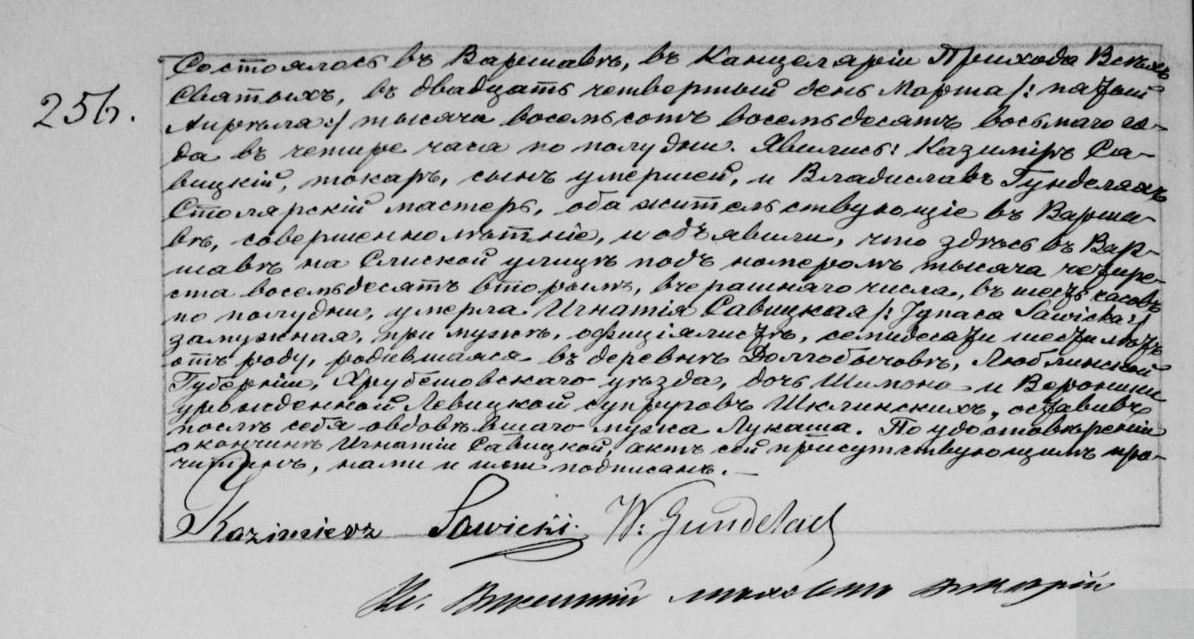 256.
Состоялось въ Варшавѣ, въ Канцеляріи Прихода Всѣхъ
Святыхъ, въ двадцать четвертый день Марта /: пятый
Апрѣля :/ тысяча восемьсотъ восемьдесятъ восьмаго го-
да въ четыре часа по полудни. Явились: Казимиръ Са-
вицкій, токарь, сынъ умершей, и Владиславъ Гунделахъ
Столярскій мастеръ, оба жительствующіе въ Варша-
вѣ, совершеннолѣтніе, и объявили, что здѣсь въ Вар-
шавѣ на Слиской улицѣ подъ номеромъ тысяча четыре-
ста восемьдесятъ вторымъ, вчерашняго числа, въ шесть часовъ
по полудни, умерла Игнатія Савицкая /: Ignaca Sawicka :/
замужняя, при мужѣ, оффиціалистѣ, семидесяти шести лѣтъ
отъ роду, родившаяся въ деревнѣ Долгобычовѣ, Люблинской
Губерніи, Хрубешовскаго уѣзда, дочь Шимона и Вероники
урожденной Левицкой супруговъ Шклинскихъ, оставивъ
послѣ себя овдовѣвшаго мужа Лукаша. По удостовѣреніи
о кончинѣ Игнатіи Савицкой, актъ сей присутствующимъ про-
читанъ, нами и ими подписанъ. —
Kazimierz Sawicki. W. Gundelach
Кс.